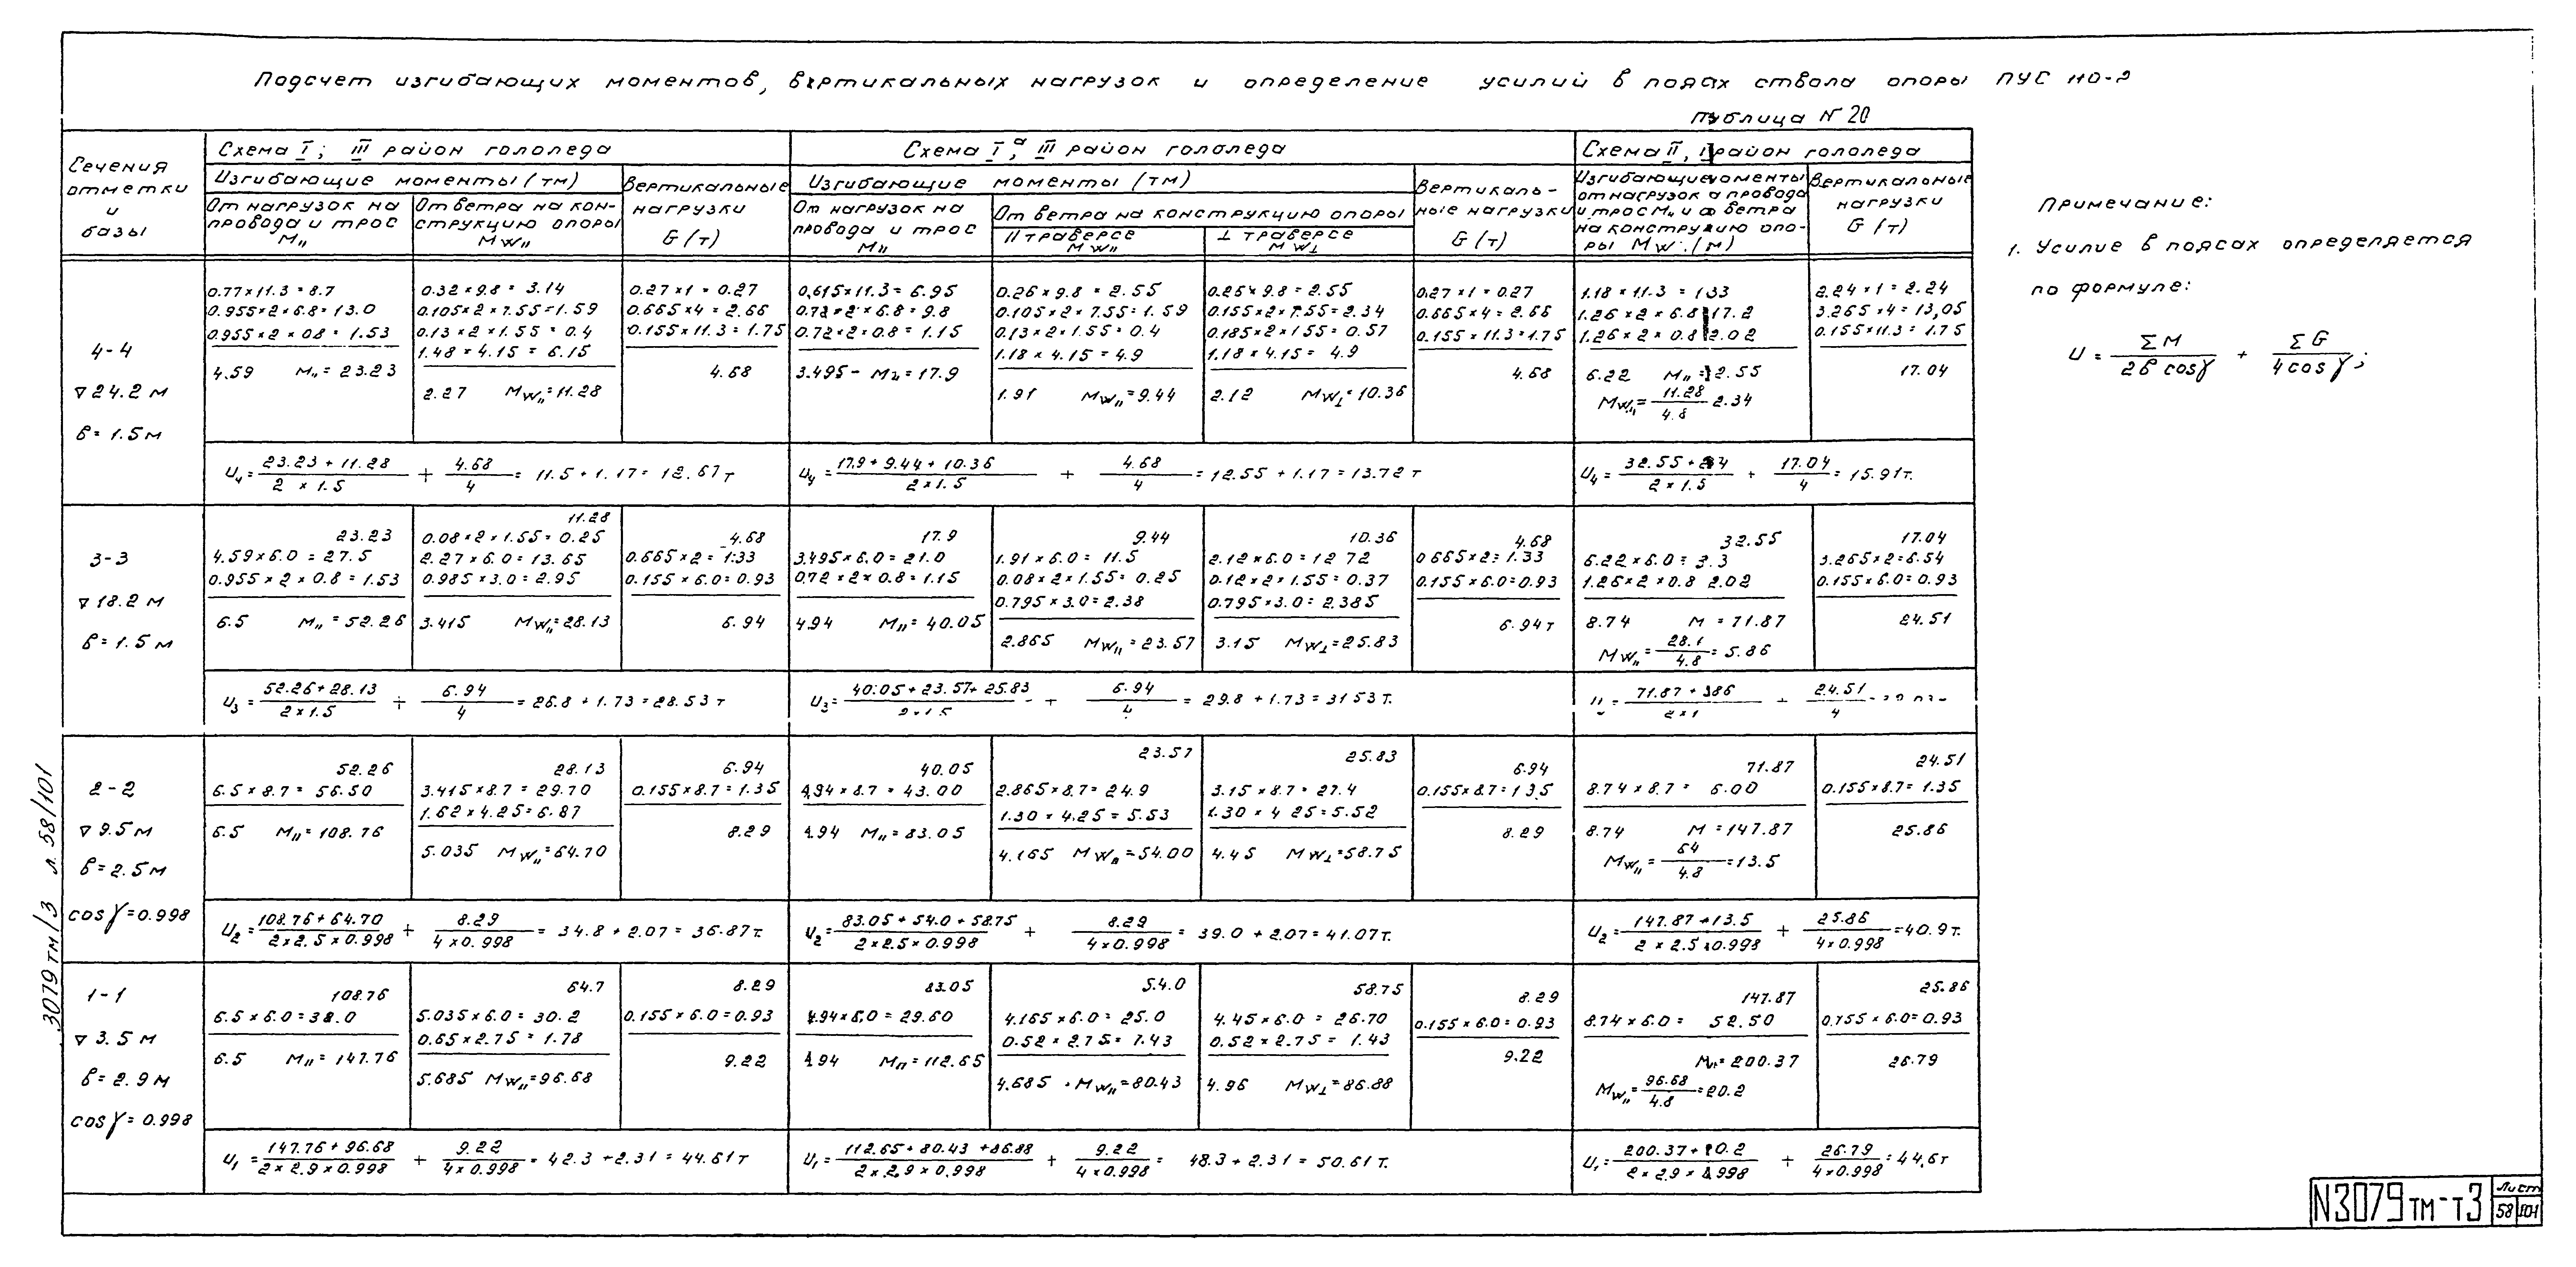 Подсчет изгибающих моментов, вертикальных нагрузок и определение усилий в поясах ствола опоры ПУС 110-2
Таблица N 20
Сечения отметки и базы
Схема I; III район гололеда
Изгибающие моменты (тм)
От нагрузок на провода и трос М"
От ветра на конструкцию опоры МW"
Вертикальные нагрузки G (т)
Схема Iа, III район гололеда
Изгибающие моменты (тм)
От нагрузок на провода и трос М"
От ветра на конструкцию опоры
// траверсе МW"
⊥ траверсе МW⊥
Вертикальные нагрузки G (т)
Схема II, район гололеда
Изгибающие моменты от нагрузок провода и трос М" и ветра на конструкцию опоры МW (м)
Вертикальные нагрузки G (т)
4-4
∇ 24.2 м
в = 1.5 м
0.77 × 11.3 = 8.7
0.955 × 2 × 6.8 = 13.0
0.955 × 2 × 0.8 = 1.53
4.59 М" = 23.23
0.32 × 9.8 = 3.14
0.105 × 2 × 7.55 = 1.59
0.13 × 2 × 1.55 = 0.4
1.48 × 4.15 = 6.15
2.27 МW" = 11.28
0.27 × 1 = 0.27
0.665 × 4 = 2.66
0.155 × 11.3 = 1.75
4.68
0.615 × 11.3 = 6.95
0.72 × 2 × 6.8 = 9.8
0.72 × 2 × 0.8 = 1.15
3.495 - М" = 17.9
0.26 × 9.8 = 2.55
0.105 × 2 × 7.55 = 1.59
0.13 × 2 × 1.55 = 0.4
1.18 × 4.15 = 4.9
1.91 МW" = 9.44
0.26 × 9.8 = 2.55
0.155 × 2 × 7.55 = 2.34
0.185 × 2 × 1.55 = 0.57
1.18 × 4.15 = 4.9
2.12 МW⊥ = 10.36
0.27 × 1 = 0.27
0.665 × 4 = 2.66
0.155 × 11.3 = 1.75
4.68
1.18 × 11.3 = 133
1.26 × 2 × 6.8 17.2
1.26 × 2 × 0.8 2.02
6.22 М" = 2.55
МW" = 11.28 / 4.8 2.34
2.24 × 1 = 2.24
3.265 × 4 = 13,05
0.155 × 11.3 = 1.75
17.04
U4 = (23.23 + 11.28) / (2 × 1.5) + 4.68 / 4 = 11.5 + 1.17 = 12.67 т
U4 = (17.9 + 9.44 + 10.36) / (2 × 1.5) + 4.68 / 4 = 12.55 + 1.17 = 13.72 т
U4 = (32.55 + 2 4) / (2 × 1.5) + 17.04 / 4 = 15.91 т.
3-3
∇ 18.2 м
в = 1.5 м
23.23
4.59 × 6.0 = 27.5
0.955 × 2 × 0.8 = 1.53
6.5 М" = 52.26
11.28
0.08 × 2 × 1.55 = 0.25
2.27 × 6.0 = 13.65
0.985 × 3.0 = 2.95
3.415 МW" = 28.13
4.68
0.665 × 2 = 1.33
0.155 × 6.0 = 0.93
6.94
17.9
3.495 × 6.0 = 21.0
0.72 × 2 × 0.8 = 1.15
4.94 М" = 40.05
9.44
1.91 × 6.0 = 11.5
0.08 × 2 × 1.55 = 0.25
0.795 × 3.0 = 2.38
2.865 МW" = 23.57
10.36
2.12 × 6.0 = 12 72
0.12 × 2 × 1.55 = 0.37
0.795 × 3.0 = 2.385
3.15 МW⊥ = 25.83
4.68
0.665 × 2 = 1.33
0.155 × 6.0 = 0.93
6.94 т
32.55
6.22 × 6.0 = 3.3
1.26 × 2 × 0.8 2.02
8.74 М = 71.87
МW" = 28.1 / 4.8 = 5.86
17.04
3.265 × 2 = 6.54
0.155 × 6.0 = 0.93
24.51
U3 = (52.26 + 28.13) / (2 × 1.5) + 6.94 / 4 = 26.8 + 1.73 = 28.53 т
U3 = (40.05 + 23.57 + 25.83) / (2 × 1.5) + 6.94 / 4 = 29.8 + 1.73 = 31 53 т.
(71.87 + 386) / (2 × 1 + 24.51 / 4
2-2
∇ 9.5 м
в = 2.5 м
cos γ = 0.998
52.26
6.5 × 8.7 = 56.50
6.5 М" = 108.76
28.13
3.415 × 8.7 = 29.70
1.62 × 4.25 = 6.87
5.035 МW" = 64.70
6.94
0.155 × 8.7 = 1.35
8.29
40.05
4.94 × 8.7 = 43.00
4.94 М" = 83.05
23.57
2.865 × 8.7 = 24.9
1.30 × 4.25 = 5.53
4.165 МW" = 54.00
25.83
3.15 × 8.7 = 27.4
1.30 × 4 25 = 5.52
4.45 МW⊥ = 58.75
6.94
0.155 × 8.7 = 1 3.5
8.29
71.87
8.74 × 8.7 = 6.00
8.74 М = 147.87
МW" = 64 / 4.8 = 13.5
24.51
0.155 × 8.7 = 1.35
25.86
U2 = (108.76 + 64.70) / (2 × 2.5 × 0.998) + 8.29 / (4 × 0.998) = 34.8 + 2.07 = 36.87 т.
U2 = (83.05 + 54.0 + 58.75) / (2 × 2.5 × 0.998) + 8.29 / (4 × 0.998) = 39.0 + 2.07 = 41.07 т.
U2 = (147.87 + 13.5) / (2 × 2.5 × 0.998) + 25.86 / (4 × 0.998) = 40.9 т.
1-1
∇ 3.5 м
в = 2.9 м
cos γ = 0.998
108.76
6.5 × 6.0 = 38.0
6.5 М" = 147.76
64.7
5.035 × 6.0 = 30.2
0.65 × 2.75 = 1.78
5.685 МW" = 96.68
8.29
0.155 × 6.0 = 0.93
9.22
83.05
4.94 × 6.0 = 29.60
4.94 М" = 112.65
54.0
4.165 × 6.0 = 25.0
0.52 × 2.75 = 1.43
4.685 МW" = 80.43
58.75
4.45 × 6.0 = 26.70
0.52 × 2.75 = 1.43
4.96 МW⊥ = 86.88
8.29
0.155 × 6.0 = 0.93
9.22
147.87
8.74 × 6.0 = 52.50
М" = 200.37
МW" = 96.68 / 4.8 = 20.2
25.86
0.155 × 6.0 = 0.93
26.79
U1 = (147.76 + 96.68) / (2 × 2.9 × 0.998) + 9.22 / (4 × 0.998) = 42.3 + 2.31 = 44.61 т
U1 = (112.65 + 80.43 + 86.88) / (2 × 2.9 × 0.998) + 9.22 / (4 × 0.998) = 48.3 + 2.31 = 50.61 т.
U1 = (200.37 + 20.2) / (2 × 2.9 × 0.998) + 26.79 / (4 × 0.998) = 44,6 т
Примечание:
1. Усилие в поясах определяется
по формуле:
U = ΣM / (2в cosγ) + ΣG / (4 cosγ);
3079 тм/3 л. 58/101
N3079тм-т3
Лист
58 101